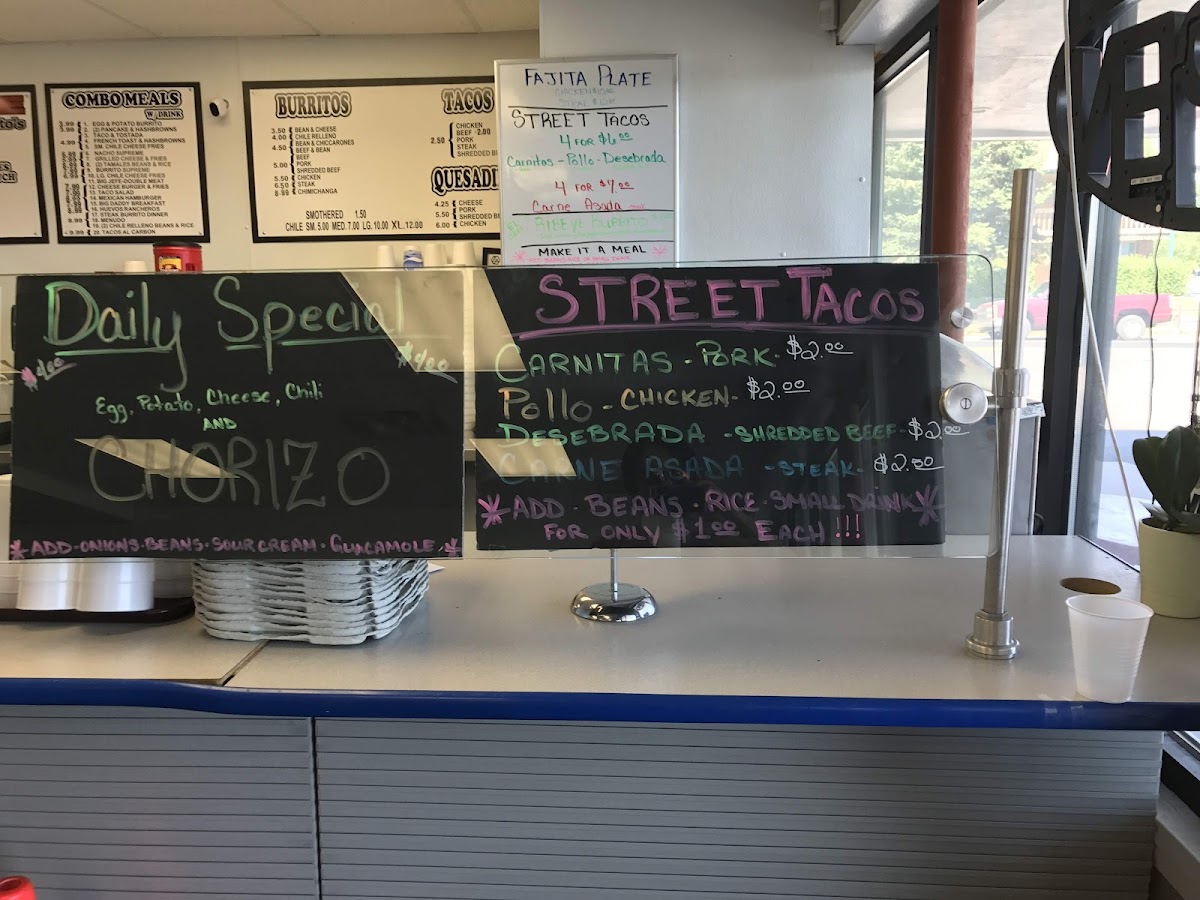 COMBO MEALS
W/DRINK
3.99 1. EGG & POTATO BURRITO
3.99 2. (2) PANCAKE & HASHBROWNS
3. TACO & TOSTADA
4.99 4. FRENCH TOAST & HASHBROWNS
5. SM. CHILE CHEESE FRIES
6. NACHO SUPREME
7. GRILLED CHEESE & FRIES
8. (2) TAMALES BEANS & RICE
9. BURRITO SUPREME
10. LG. CHILE CHEESE FRIES
11. BIG JEFE-DOUBLE MEAT
12. CHEESE BURGER & FRIES
13. TACO SALAD
14. MEXICAN HAMBURGER
15. BIG DADDY BREAKFAST
16. HUEVOS RANCHEROS
17. STEAK BURRITO DINNER
18. MENUDO
8.99 19. (2) CHILE RELLENO BEANS & RICE
20. TACOS AL CARBON
BURRITOS
3.50 BEAN & CHEESE
4.00 CHILE RELLENO
4.50 BEAN & CHICCARONES
BEEF & BEAN
BEEF
5.00 PORK
SHREDDED BEEF
5.50 CHICKEN
6.50 STEAK
8.99 CHIMICHANGA
SMOTHERED 1.50
CHILE SM. 5.00 MED. 7.00 LG. 10.00 XL. 12.00
TACOS
CHICKEN
BEEF -2.00
2.50 PORK
STEAK
SHREDDED
QUESADI
4.25 CHEESE
PORK
5.50 SHREDDED
6.00 CHICKEN
FAJITA PLATE
STREET TACOS
4 FOR $6.00
Carnitas - Pollo - Desebrada
4 FOR $7.00
Carne Asada
BURRITO
MAKE IT A MEAL
Daily Special
$4.00 $4.00
Egg, Potato, Cheese, Chili
AND
CHORIZO
ADD-ONIONS-BEANS-SOUR CREAM-GUACAMOLE
STREET TACOS
CARNITAS - PORK - $2.00
POLLO - CHICKEN - $2.00
DESEBRADA - SHREDDED BEEF - $2.00
CARNE ASADA - STEAK - $2.50
ADD - BEANS - RICE - SMALL DRINK
FOR ONLY $1.00 EACH!!!